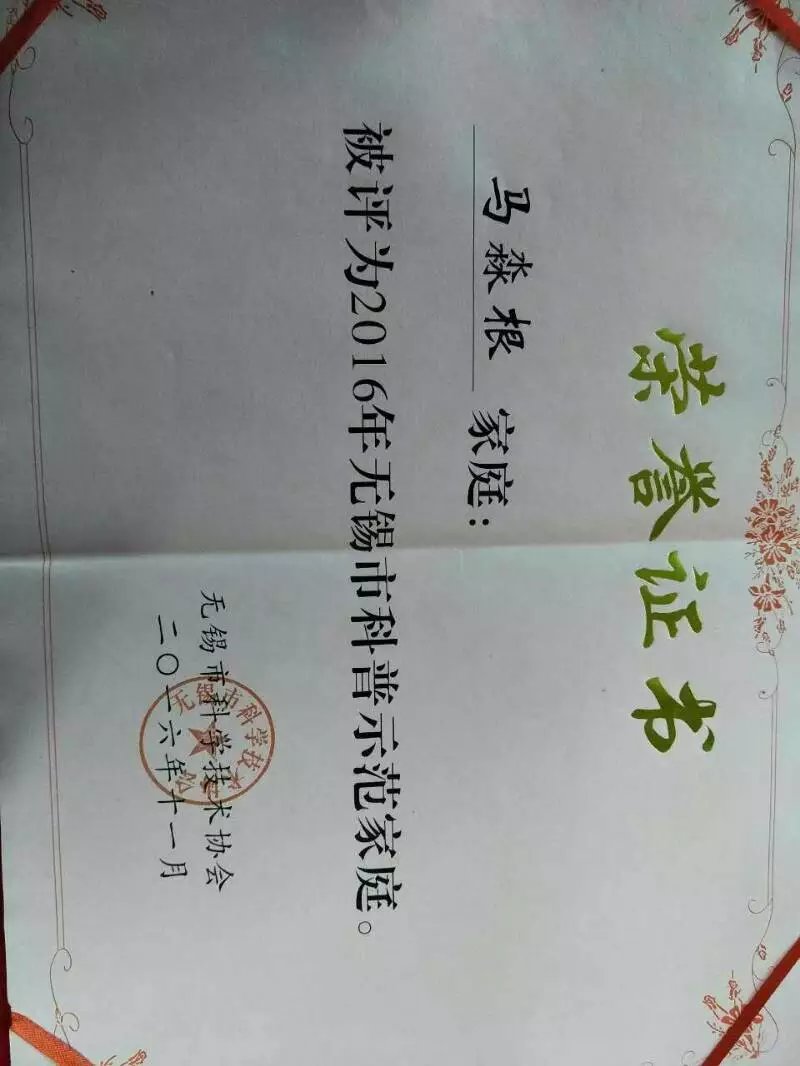 荣誉证书
马淼根 家庭：
被评为2016年无锡市科普示范家庭。
无锡市科学技术协会
二〇一六年十一月
无锡市科学技术